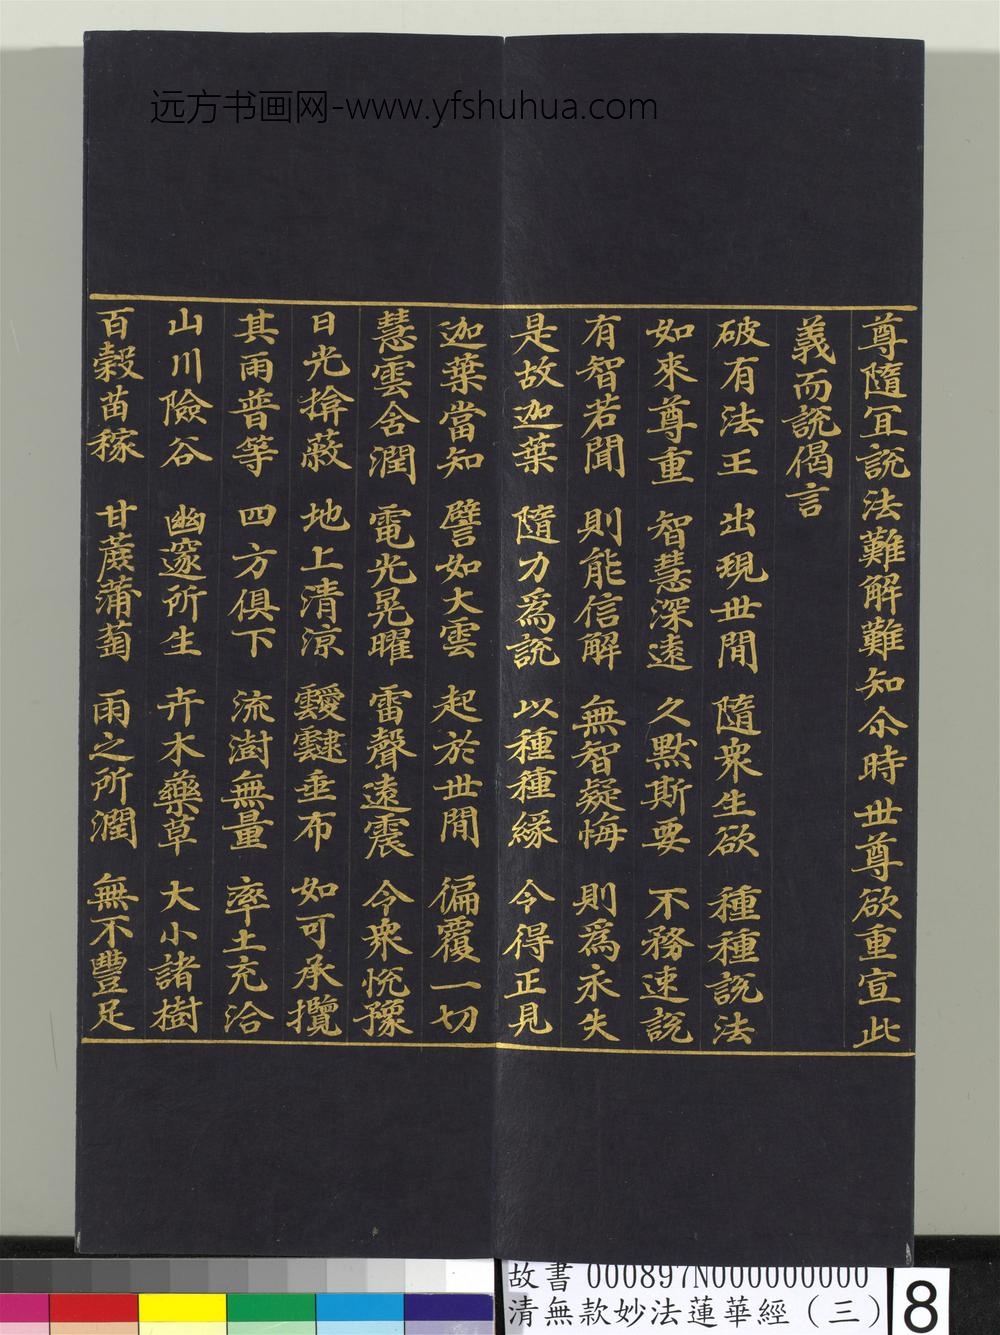 远方书画网-www.yfshuhua.com
尊隨宜說法難解難知尒時世尊欲重宣此
義而說偈言
破有法王 出現世間 隨衆生欲 種種說法
如來尊重 智慧深遠 久默斯要 不務速說
有智若聞 則能信解 無智疑悔 則爲永失
是故迦葉 隨力爲說 以種種緣 令得正見
迦葉當知 譬如大雲 起於世間 徧覆一切
慧雲含潤 電光晃曜 雷聲遠震 令衆悅豫
日光揜蔽 地上清涼 靉靆垂布 如可承攬
其雨普等 四方俱下 流澍無量 率土充洽
山川險谷 幽邃所生 卉木藥草 大小諸樹
百穀苗稼 甘蔗蒲萄 雨之所潤 無不豐足
故書 000897N000000000
清無款妙法蓮華經（三） 8